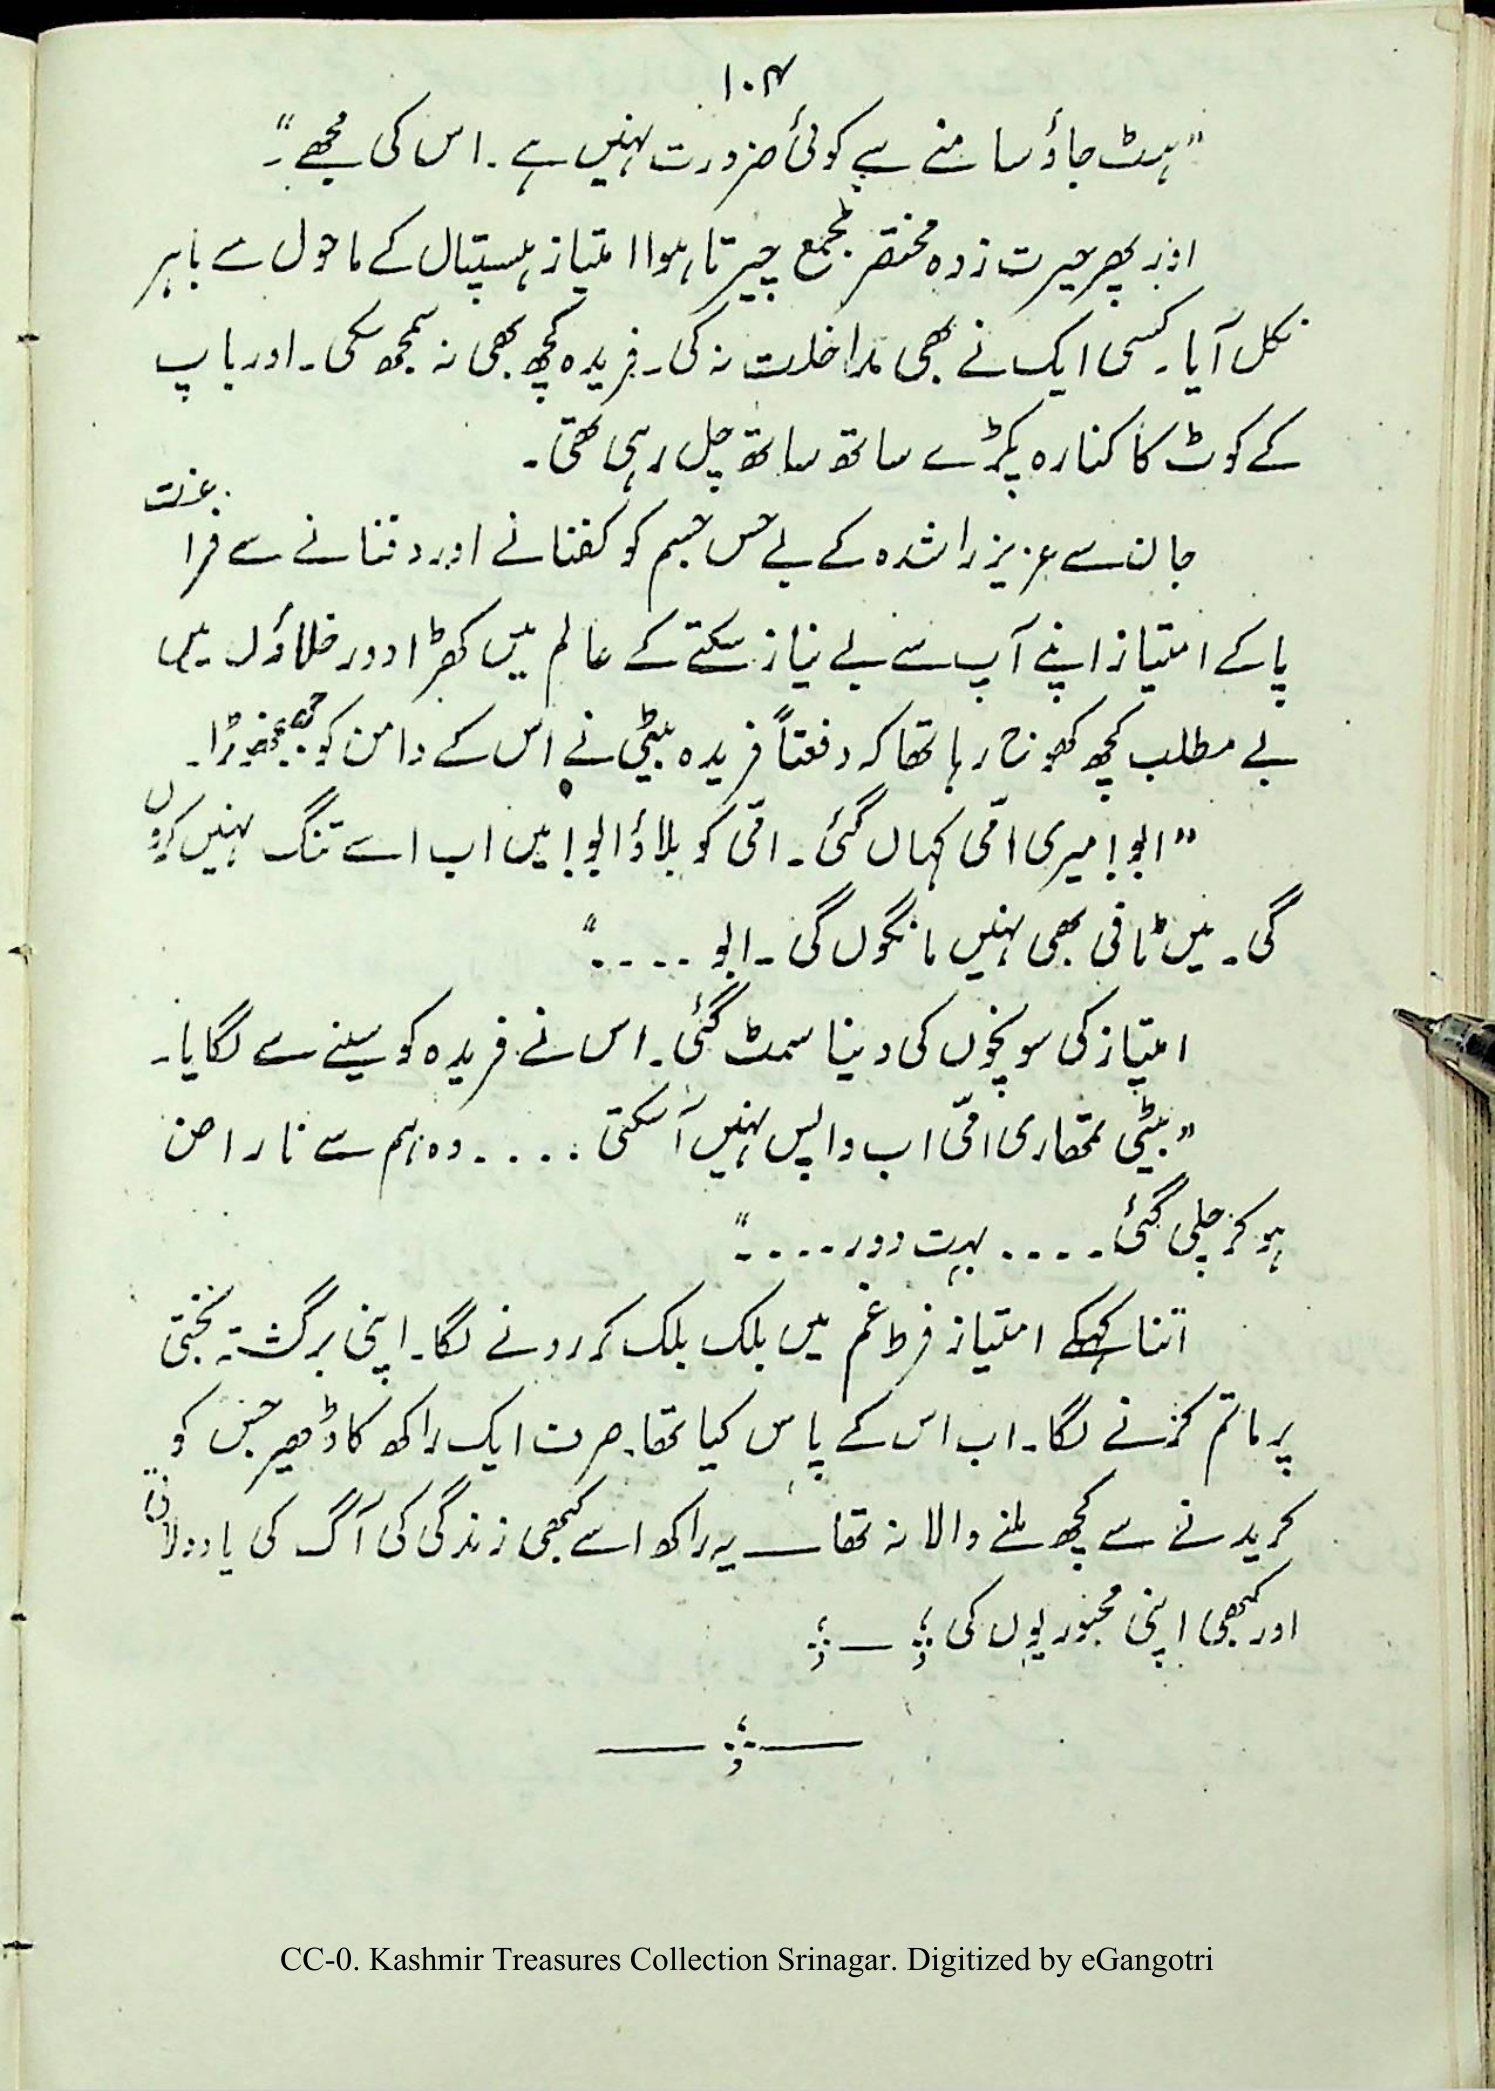 ۱۰۴
"ہٹ جاؤ سامنے سے کوئی ضرورت نہیں ہے۔ اس کی مجھے۔"
اور پھر حیرت زدہ مختصر مجمع چیرتا ہوا امتیاز ہسپتال کے ماحول سے باہر
نکل آیا۔ کسی ایک نے بھی مداخلت نہ کی۔ فریدہ کچھ بھی نہ سمجھ سکی۔ اور باپ
کے کوٹ کا کنارہ پکڑے ساتھ ساتھ چل رہی تھی۔
جان سے عزیز راشدہ کے بے حس جسم کو کفنانے اور دفنانے سے فراغت
پاکے امتیاز اپنے آپ سے بے نیاز سکتے کے عالم میں کھڑا دور خلاؤں میں
بے مطلب کچھ کھوج رہا تھا کہ دفعتاً فریدہ بیٹی نے اس کے دامن کو جھنجھوڑا۔
"ابو! میری امّی کہاں گئی۔ امّی کو بلاؤ ابو! میں اب اسے تنگ نہیں کروں
گی۔ میں ٹافی بھی نہیں مانگوں گی۔ ابو ۔۔۔۔"
امتیاز کی سوچوں کی دنیا سمٹ گئی۔ اس نے فریدہ کو سینے سے لگایا۔
"بیٹی تمھاری امّی اب واپس نہیں آسکتی ۔۔۔۔ وہ ہم سے ناراض
ہو کر چلی گئی۔۔۔۔ بہت دور ۔۔۔۔"
اتنا کہکے امتیاز فرط غم میں بلک بلک کر رونے لگا۔ اپنی برگشتہ بختی
پر ماتم کرنے لگا۔ اب اس کے پاس کیا تھا۔ صرف ایک راکھ کا ڈھیر جس کو
کریدنے سے کچھ ملنے والا نہ تھا ــــ یہ راکھ اسے کبھی زندگی کی آگ کی یاد دلاتی
اور کبھی اپنی مجبوریوں کی ؛ ــ ؛
CC-0. Kashmir Treasures Collection Srinagar. Digitized by eGangotri